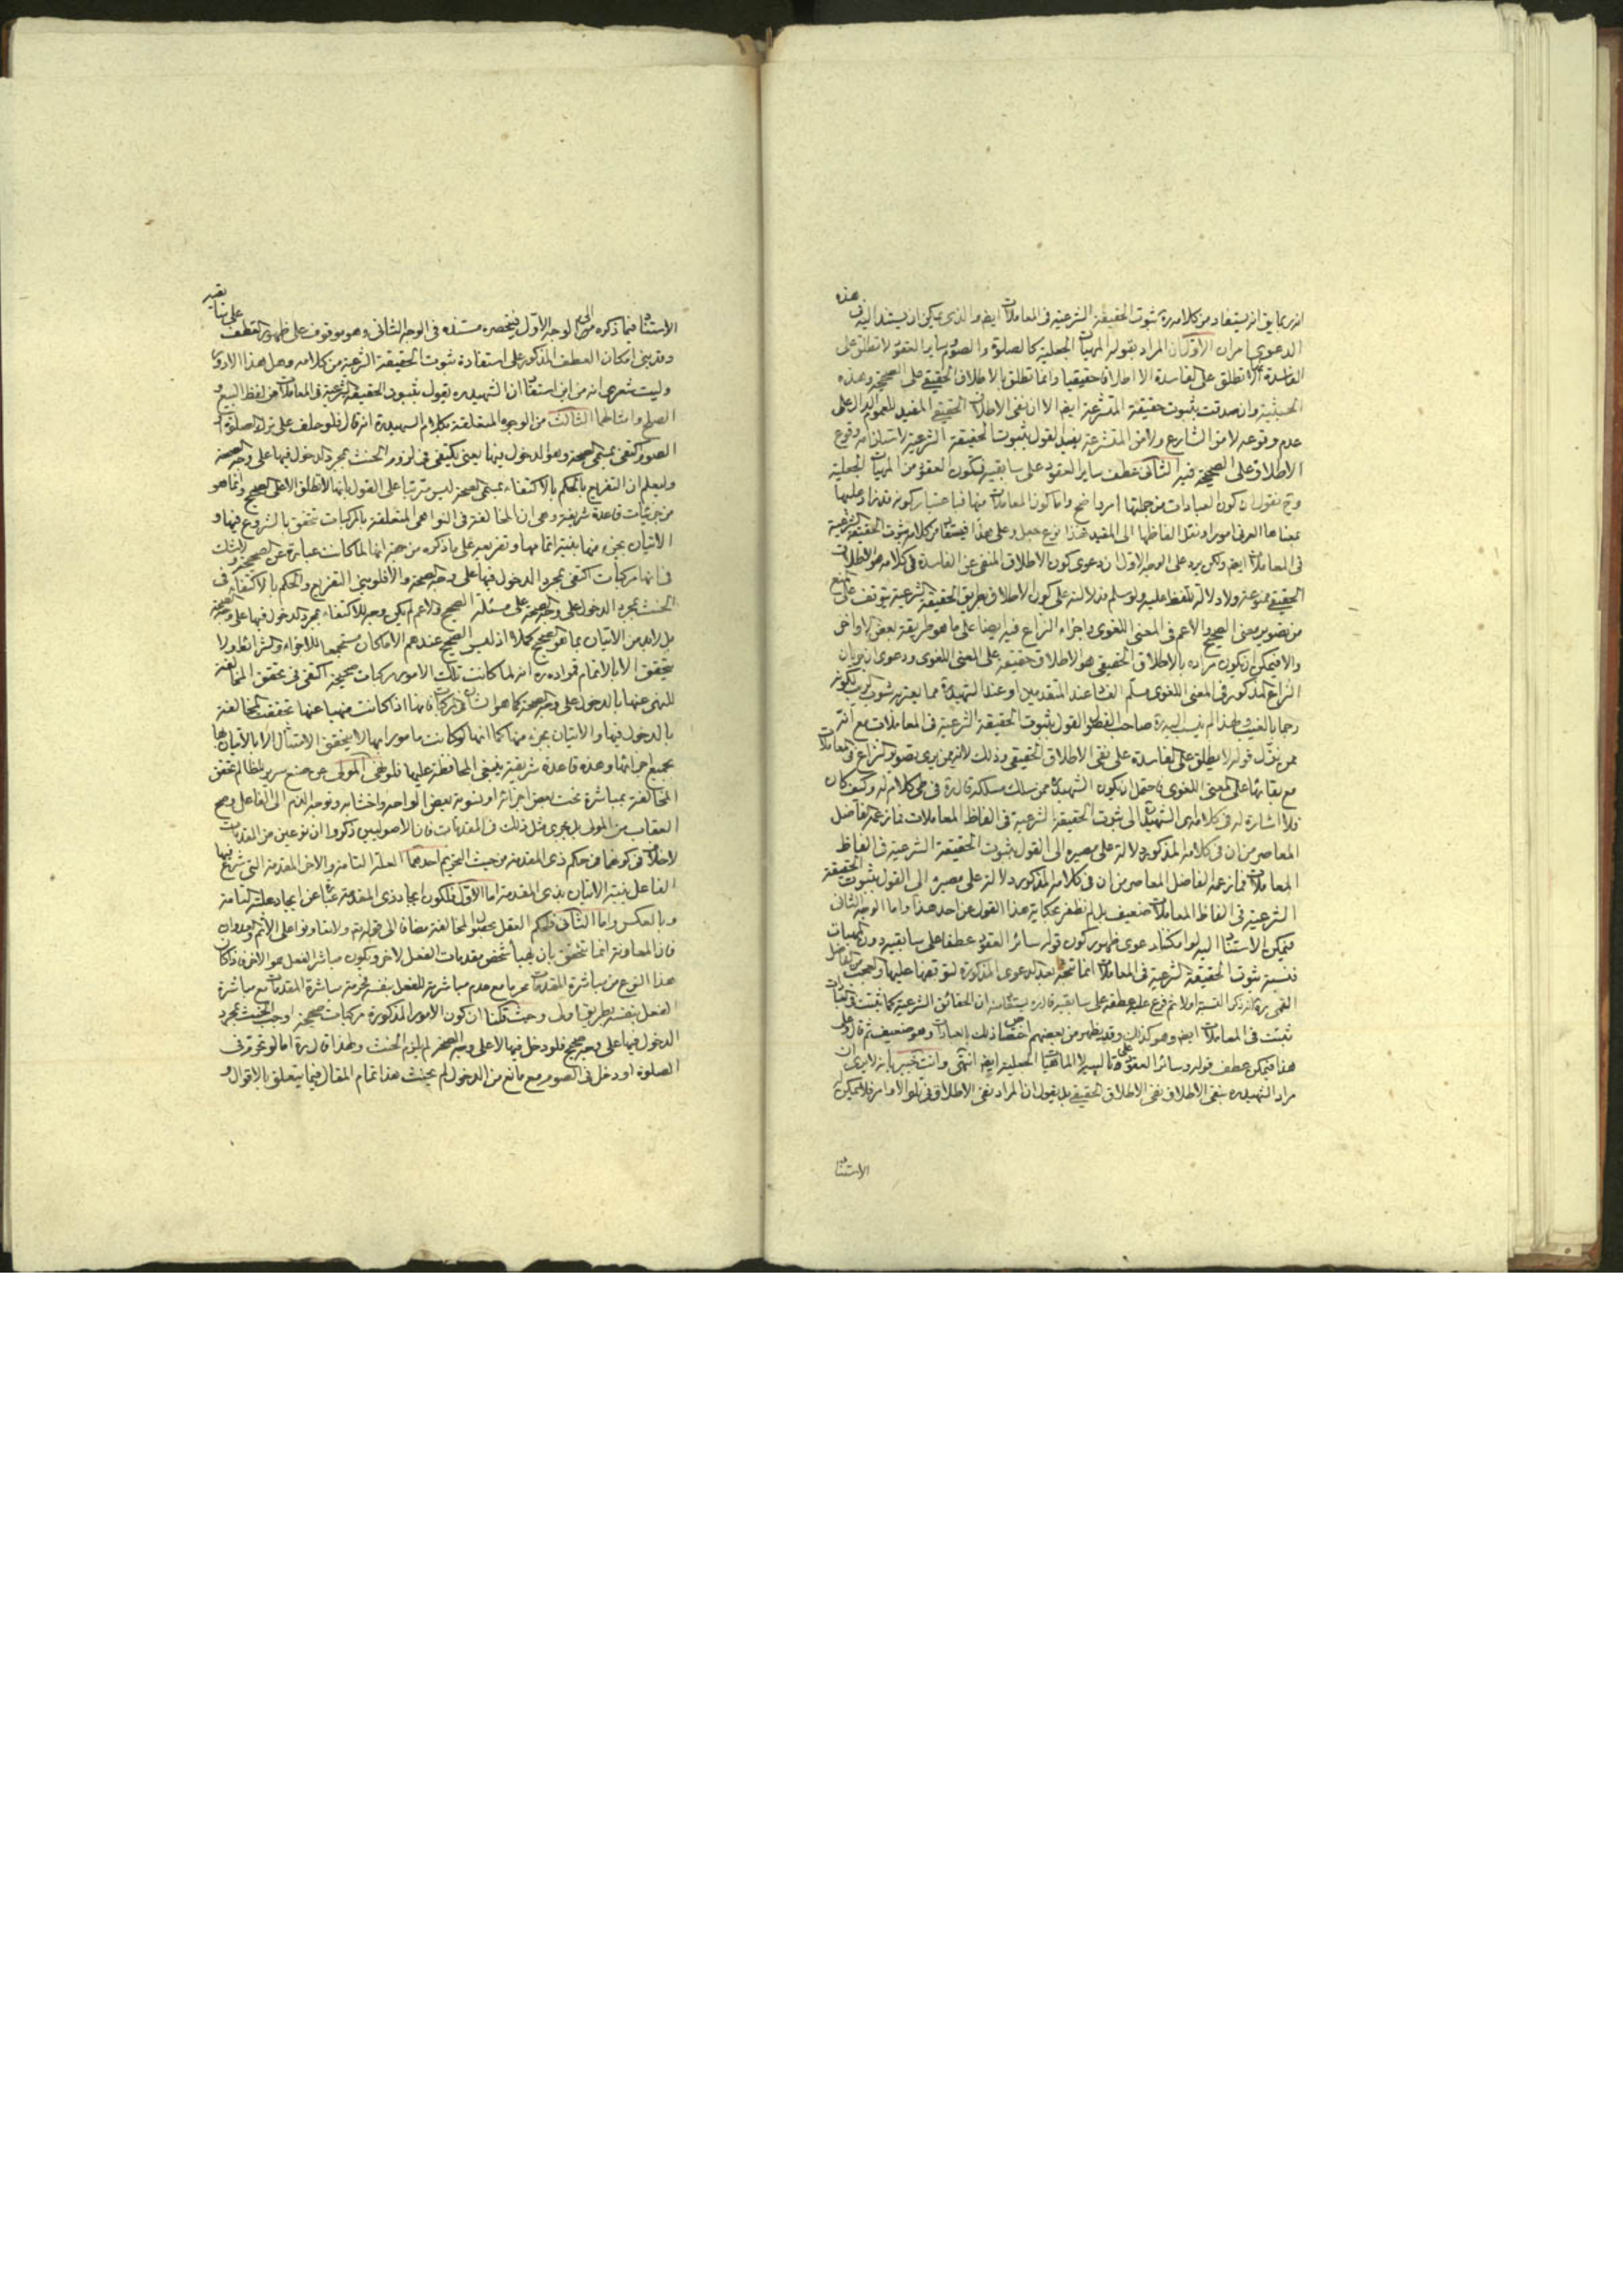 انه ربما يق انه يستفاد من كلامه ره ثبوت الحقيقة الشرعية فى المعاملات ايضا والذى يمكن ان يستند اليه فى هذه
الدعوى امران الاول ان المراد بقوله المهيات الجعلية كالصلوة والصوم وساير العقود لا تطلق على
الفاسدة انها لا تطلق على الفاسدة الا اطلاقا حقيقيا وانما تطلق بالاطلاق الحقيقى على الصحيحة وهذه
الحيثية وان صدقت بثبوت حقيقة المتشرعة ايضا الا ان نفى الاطلاق الحقيقى المفيد للعموم الدال على
عدم وقوعه لا من الشارع ولا من المتشرعة يفيد القول بثبوت الحقيقة الشرعية لاستلزامه وقوع
الاطلاق على الصحيحة فيه الثانى عطف ساير العقود على سابقيه فيكون العقود من المهيات الجعلية
وح نقول ان كون العبادات من جملتها امر واضح واما كون المعاملات منها فباعتبار كونه قد زاد عليها
بمعناها العرفى امورا ونقل الفاظها الى المقيد فهذا نوع جعل وعلى هذا فيستفاد من كلامه ثبوت الحقيقة الشرعية
فى المعاملات ايضا ولكن يرد على الوجه الاول ان دعوى كون الاطلاق المنفى عن الفاسدة فى كلامه هو الاطلاق
الحقيقى ممنوعة ولا دلالة للفظ عليه ولو سلم فدلالته على كون الاطلاق بطريق الحقيقة الشرعية يتوقف على منع
من تصوير معنى الصحيح والاعم فى المعنى اللغوى واجراء النزاع فيه ايضا على ما هو طريقة بعض الاواخر
والا فيمكن ان يكون مراده بالاطلاق الحقيقى هو الاطلاق حقيقة على المعنى اللغوى ودعوى ان جريان
النزاع المذكور فى المعنى اللغوى مسلم الفساد عند المتقدمين او عند الشهيد ره مما يعتريه شوب الريب لكونه
رجما بالغيب ولهذا لم ينسب اليه ره صاحب الفصول القول بثبوت الحقيقة الشرعية فى المعاملات مع انه
ممن نزل قوله لا يطلق على الفاسدة على نفى الاطلاق الحقيقى وذلك لانه ممن يرى تصوير النزاع فى المعاملات
مع بقائها على المعنى اللغوى فاحتمل ان يكون الشهيد ره ممن سلك مسلكه قال ره فى كلام له وكيف كان
فلا اشارة له فى كلام الشهيد الى ثبوت الحقيقة الشرعية فى الفاظ المعاملات فما زعمه الفاضل
المعاصر من ان فى كلامه المذكور دلالة على مصيره الى القول بثبوت الحقيقة الشرعية فى الفاظ
المعاملات فما زعمه الفاضل المعاصر من ان فى كلامه المذكور دلالة على مصيره الى القول بثبوت الحقيقة
الشرعية فى الفاظ المعاملات ضعيف بل لم نظفر بحكاية هذا القول عن احد هذا واما الوجه الثانى
فيمكن الاستناد اليه لو امكننا دعوى ظهور كون قوله سائر العقود عطفا على سابقيه دون المهيات
فنسبة ثبوت الحقيقة الشرعية فى المعاملات انما تتجه بعد الدعوى المذكورة لتوقفها عليها والعجب من الفاضل
القمى ره انه ذكر النسبة اولا ثم فرع عليه عطفه على سابقيه قال ره يستفاد منه ان الحقائق الشرعية كما ثبتت فى العبادات
ثبتت فى المعاملات ايضا وهو كذلك وقد يظهر من بعضهم اختصاص ذلك بالعبادات وهو ضعيف ثم قال وعلى
هذا فيمكن عطف قوله وسائر العقود على قالبه لا الماهيات الجعلية ايضا انتهى وانت خبير بانه لا يرى ان
مراد الشهيد ره بنفى الاطلاق نفى الاطلاق الحقيقى بل يقول ان المراد نفى الاطلاق فى تلو الاوامر فلا يمكن
الاستناد
الاستناد فيما ذكره من الوجه الاول فينحصر مستنده فى الوجه الثانى وهو موقوف على ظهور العطف على
وقد بنى امكان العطف المذكور على استفادة ثبوت الحقيقة الشرعية من كلامه وهل هذا الا دور
وليت شعرى انه من اين استفاد ان الشهيد ره يقول بثبوت الحقيقة الشرعية فى المعاملات من لفظ البيع و
الصلح وامثالهما الثالث من الوجوه المتعلقة بكلام الشهيد ره انه قال فلو حلف على ترك الصلوة او
الصوم اكتفى بمسمى الصحة وهو الدخول فيها يعنى يكتفى فى لزوم الحنث بمجرد الدخول فيها على وجه الصحة
وليعلم ان التفريع بالحكم بالاكتفاء بمسمى الصحة ليس مترتبا على القول بانها لا تطلق الا على الصحيح وانما هو
من جزئيات قاعدة شريفة وهى ان المخالفة فى النواهى المتعلقة بالمركبات تتحقق بالشروع فيها و
الاتيان بجزء منها بنية اتمامها وتفريعه على ما ذكره من جهة انها لما كانت عبارة عن الصحيحة ولا شك
فى انها مركبات اكتفى بمجرد الدخول فيها على وجه الصحة والا فلو بنى التفريع والحكم بالاكتفاء فى
الحنث بمجرد الدخول على وجه الصحة على مسئلة الصحيح والاعم لم يكن وجه للاكتفاء بمجرد الدخول فيها على وجه الصحة
بل لابد من الاتيان بما هو صحيح كملا اذ ليس الصحيح عندهم الا ما كان مستجمعا للاجزاء والشرائط ولا
يتحقق الا بالاتمام فمراده ره انه لما كانت تلك الامور مركبات صحيحة اكتفى فى تحقق المخالفة
للنهى عنها بالدخول على وجه الصحة كما هو الشان فى المركبات فانها اذا كانت منهيا عنها تحققت المخالفة
بالدخول فيها والاتيان بجزء منها كما انها لو كانت مامورا بها لا يتحقق الامتثال الا بالاتيان بها
بجميع اجزائها وهذه قاعدة شريفة ينبغى المحافظة عليها فلو نهى المولى عن صنع سرير للظالم تحقق
المخالفة بمباشرة نحت بعض اجزائه او تسوية بعض الواحه واخشابه وتوجه الذم الى الفاعل وصح
العقاب من المولى بل يجرى مثل ذلك فى المقدمات فان الاصوليين ذكروا ان نوعين من المقدمات
لا خلاف فى كونهما فى حكم ذى المقدمة من حيث التحريم احدهما العلة التامة والاخر المقدمة التى شرع فيها
الفاعل بنية الاتيان بذى المقدمة اما الاول فلكون ايجاد ذى المقدمة عبارة عن ايجاد علته التامة
وبالعكس واما الثانى فلحكم العقل بحصول المخالفة مضافا الى قوله تع ولا تعاونوا على الاثم والعدوان
فان المعاونة انما تتحقق بان يهيأ شخص مقدمات الفعل لاخر ويكون مباشر الفعل هو الاخر فاذا كان
هذا النوع من مباشرة المقدمات محرما مع عدم مباشرته للفعل بنفسه فحرمة مباشرة المقدمات مع مباشرة
الفعل بنفسه بطريق اولى وحيث قلنا ان كون الامور المذكورة مركبات صحيحة اوجب الحنث بمجرد
الدخول فيها على وجه صحيح فلو دخل فيها لا على وجه الصحة لم يلزم الحنث ولهذا قال ره اما لو تحرم فى
الصلوة او دخل فى الصوم مع مانع من الدخول لم يحنث هذا تمام المقال فيما يتعلق بالاقوال و